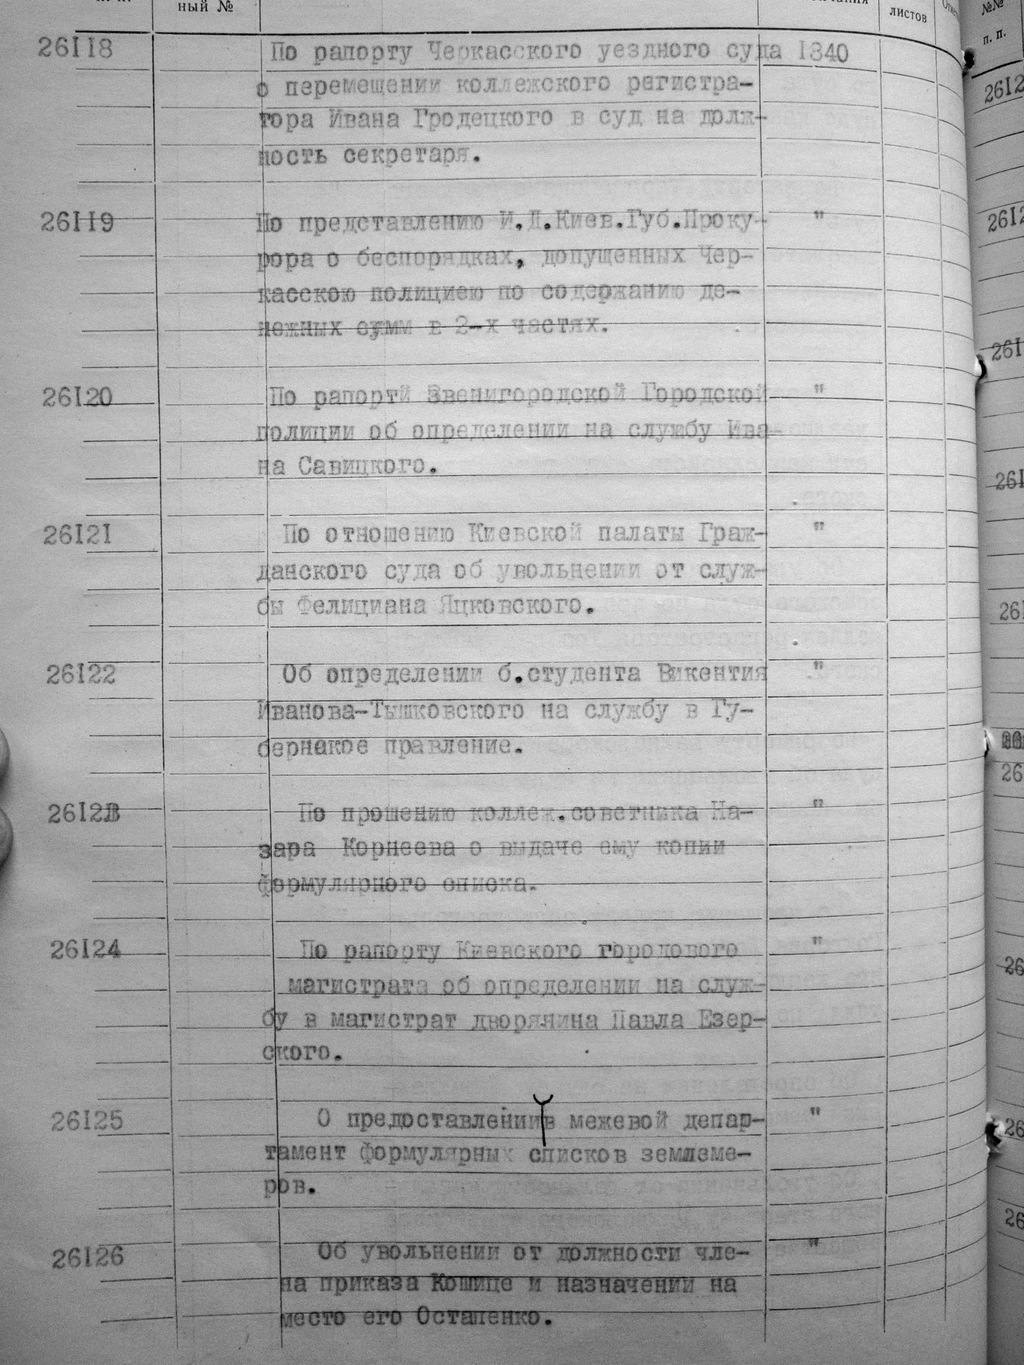 ный №
листов
№№
п. п.
26118 По рапорту Черкасского уездного суда 1840
о перемещении коллежского регистра-
тора Ивана Гродецкого в суд на долж-
ность секретаря.
26119 По представлению И.Д.Киев.Губ.Проку- "
рора о беспорядках, допущенных Чер-
касскою полициею по содержанию де-
нежных сумм в 2-х частях.
26120 По рапортй Звенигородской Городской "
полиции об определении на службу Ива-
на Савицкого.
26121 По отношению Киевской палаты Граж- "
данского суда об увольнении от служ-
бы Фелициана Яцковского.
26122 Об определении б.студента Викентия "
Иванова-Тышковского на службу в Гу-
бернакое правление.
2612 По прошению коллеж.советника На- "
зара Корнеева о выдаче ему копии
формулярного списка.
26124 По рапорту Киевского городового "
магистрата об определении на служ-
бу в магистрат дворянина Павла Езер-
ского.
26125 О предоставлении в межевой депар- "
тамент формулярных списков землеме-
ров.
26126 Об увольнении от должности чле- "
на приказа Кошице и назначении на
место его Остапенко.